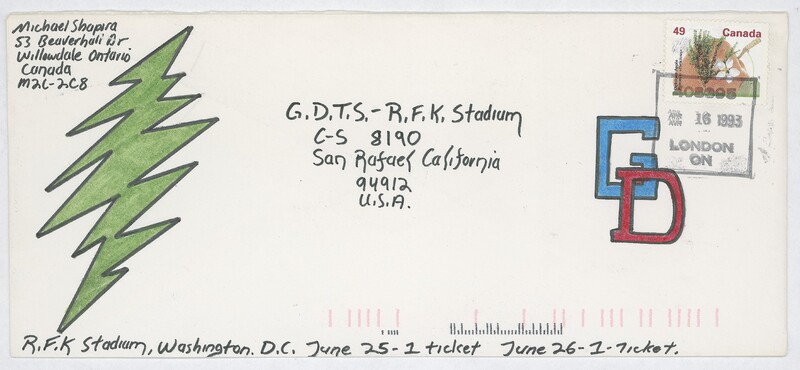 Michael Shapira
53 Beaverhall Dr
Willowdale Ontario
Canada
M2L-2C8
49 Canada
408395
16 1993
LONDON
ON
G.D.T.S.-R.F.K. Stadium
C-S 8190
San Rafael California
94912
U.S.A.
GD
R.F.K Stadium, Washington. D.C. June 25-1 ticket June 26-1-Ticket.